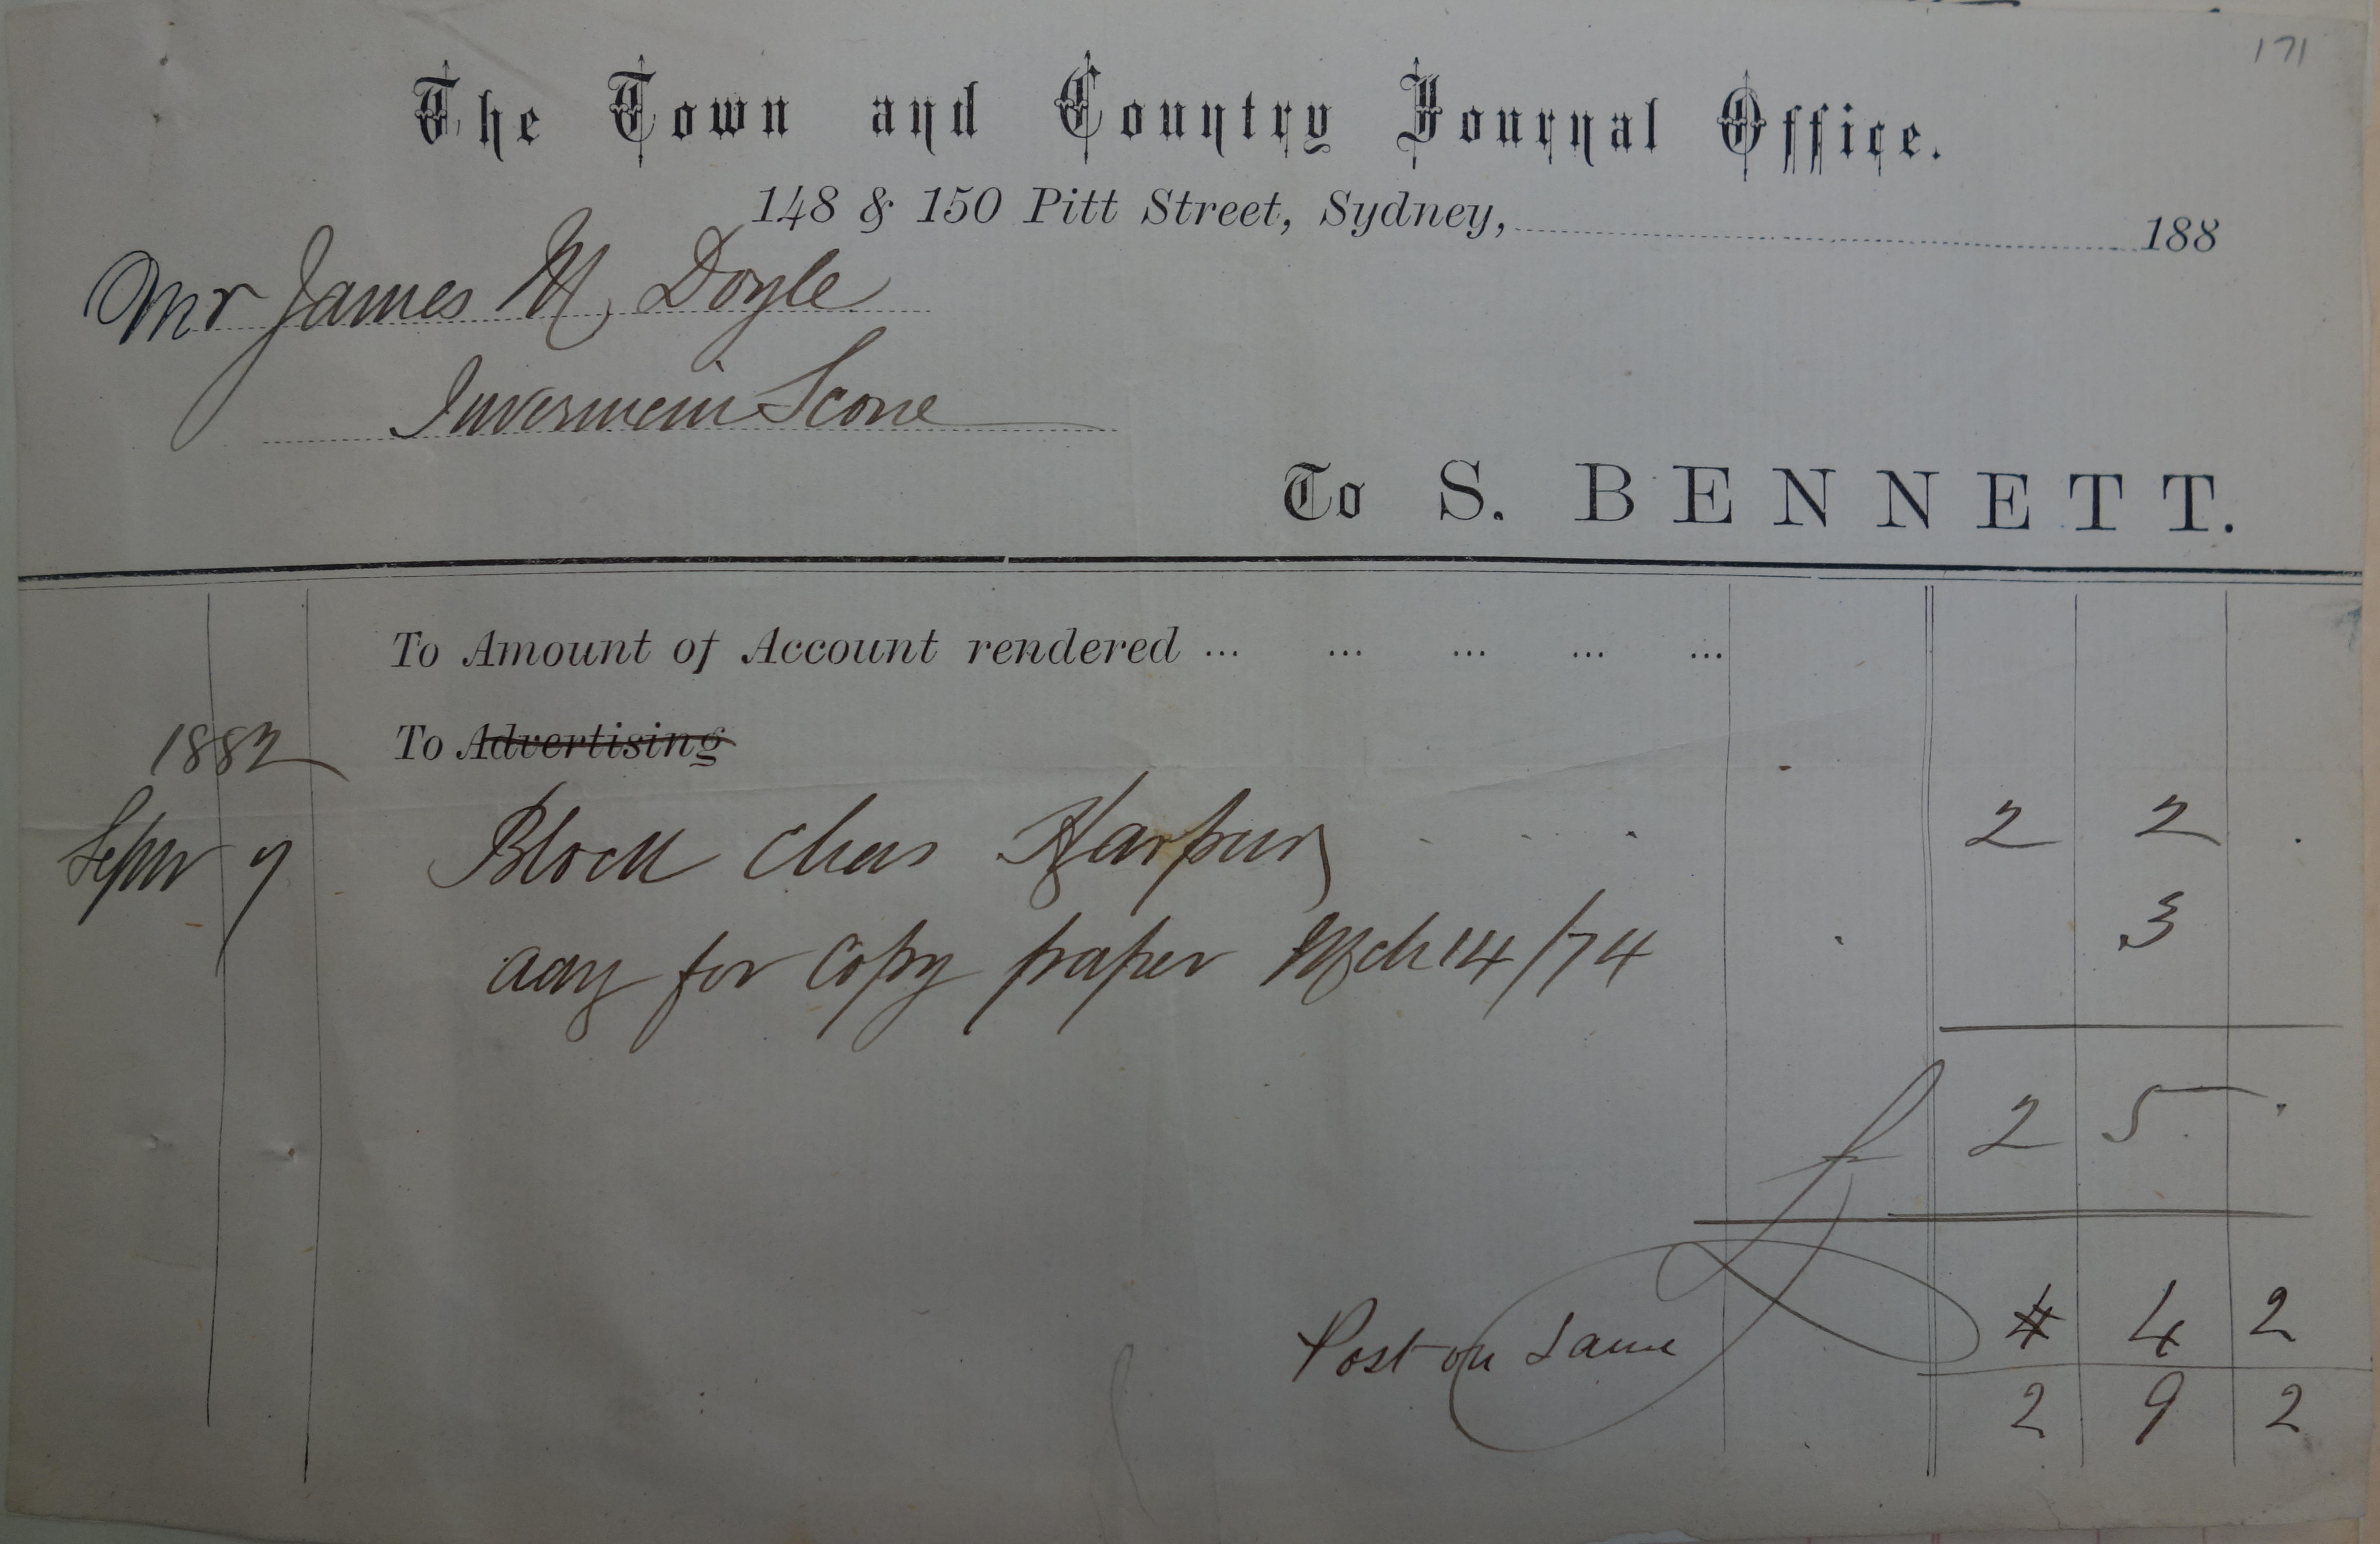 171
The Town and Country Journal Office.
148 & 150 Pitt Street, Sydney, 188
Mr James M Doyle
Invermein Scone
To S. BENNETT.
To Amount of Account rendered ... ... ... ... ...
1882 To Advertising
Sepr 7 Block Chas Harpur 2 2 .
ady for copy paper Mch 14/74 3
2 5 .
Post on same 4 2
2 9 2